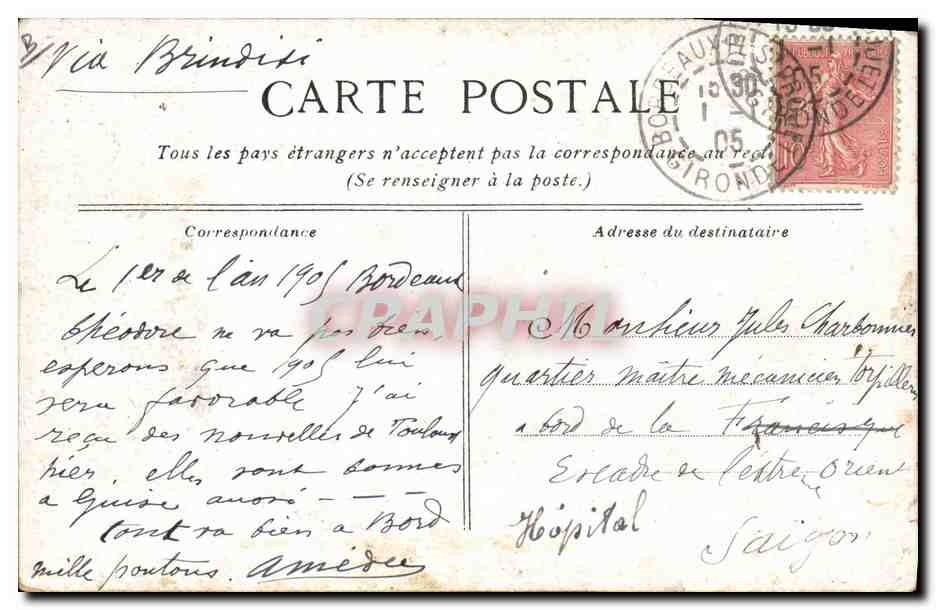 Via Brindisi
CARTE POSTALE
Tous les pays étrangers n'acceptent pas la correspondance au recto
(Se renseigner à la poste.)
Correspondance
Le 1er de l'an 1905 Bordeaux
théodore ne va pas bien
esperons que 1905 lui
sera favorable j'ai
reçu des nouvelles de Toulouse
hier, elles sont bonnes
a Guise aussi - - -
tout va bien a Bord
mille poutous. Amédée
Adresse du destinataire
Monsieur Jules Charbonnier
quartier maître mécanicien torpilleur
a bord de la Francisque
Escadre de l'extreme Orient
Hôpital
Saïgon
BORDEAUX
GIRONDE
05
CPAPHIL